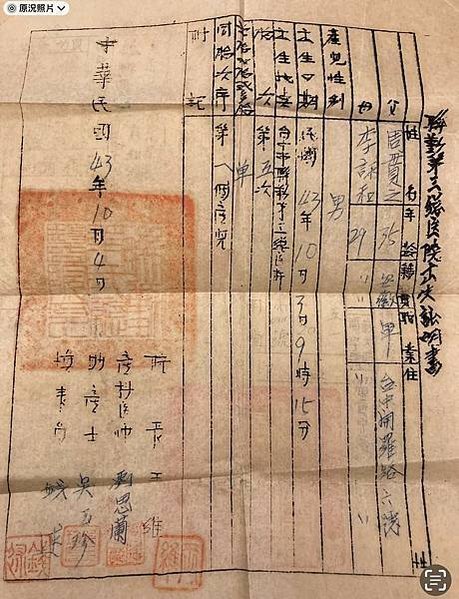 原況照片
聯勤第三總醫院出生證明書
姓名 年齡 籍貫 職業 住
父 周貢之 35 安徽 軍 台中開羅路六號
母 李 和 29 〃 〃 〃
產兒性別 男
出生日期 民國43年10月3日9時15分
出生地點 台中市聯勤第三總醫院
胎次 第五次
單
同胎次序 第一個產兒
附記
中華民國43年10月4日
院長王維
產科醫師 劉思蘭
助產士 吳玉珍
填表者 錢